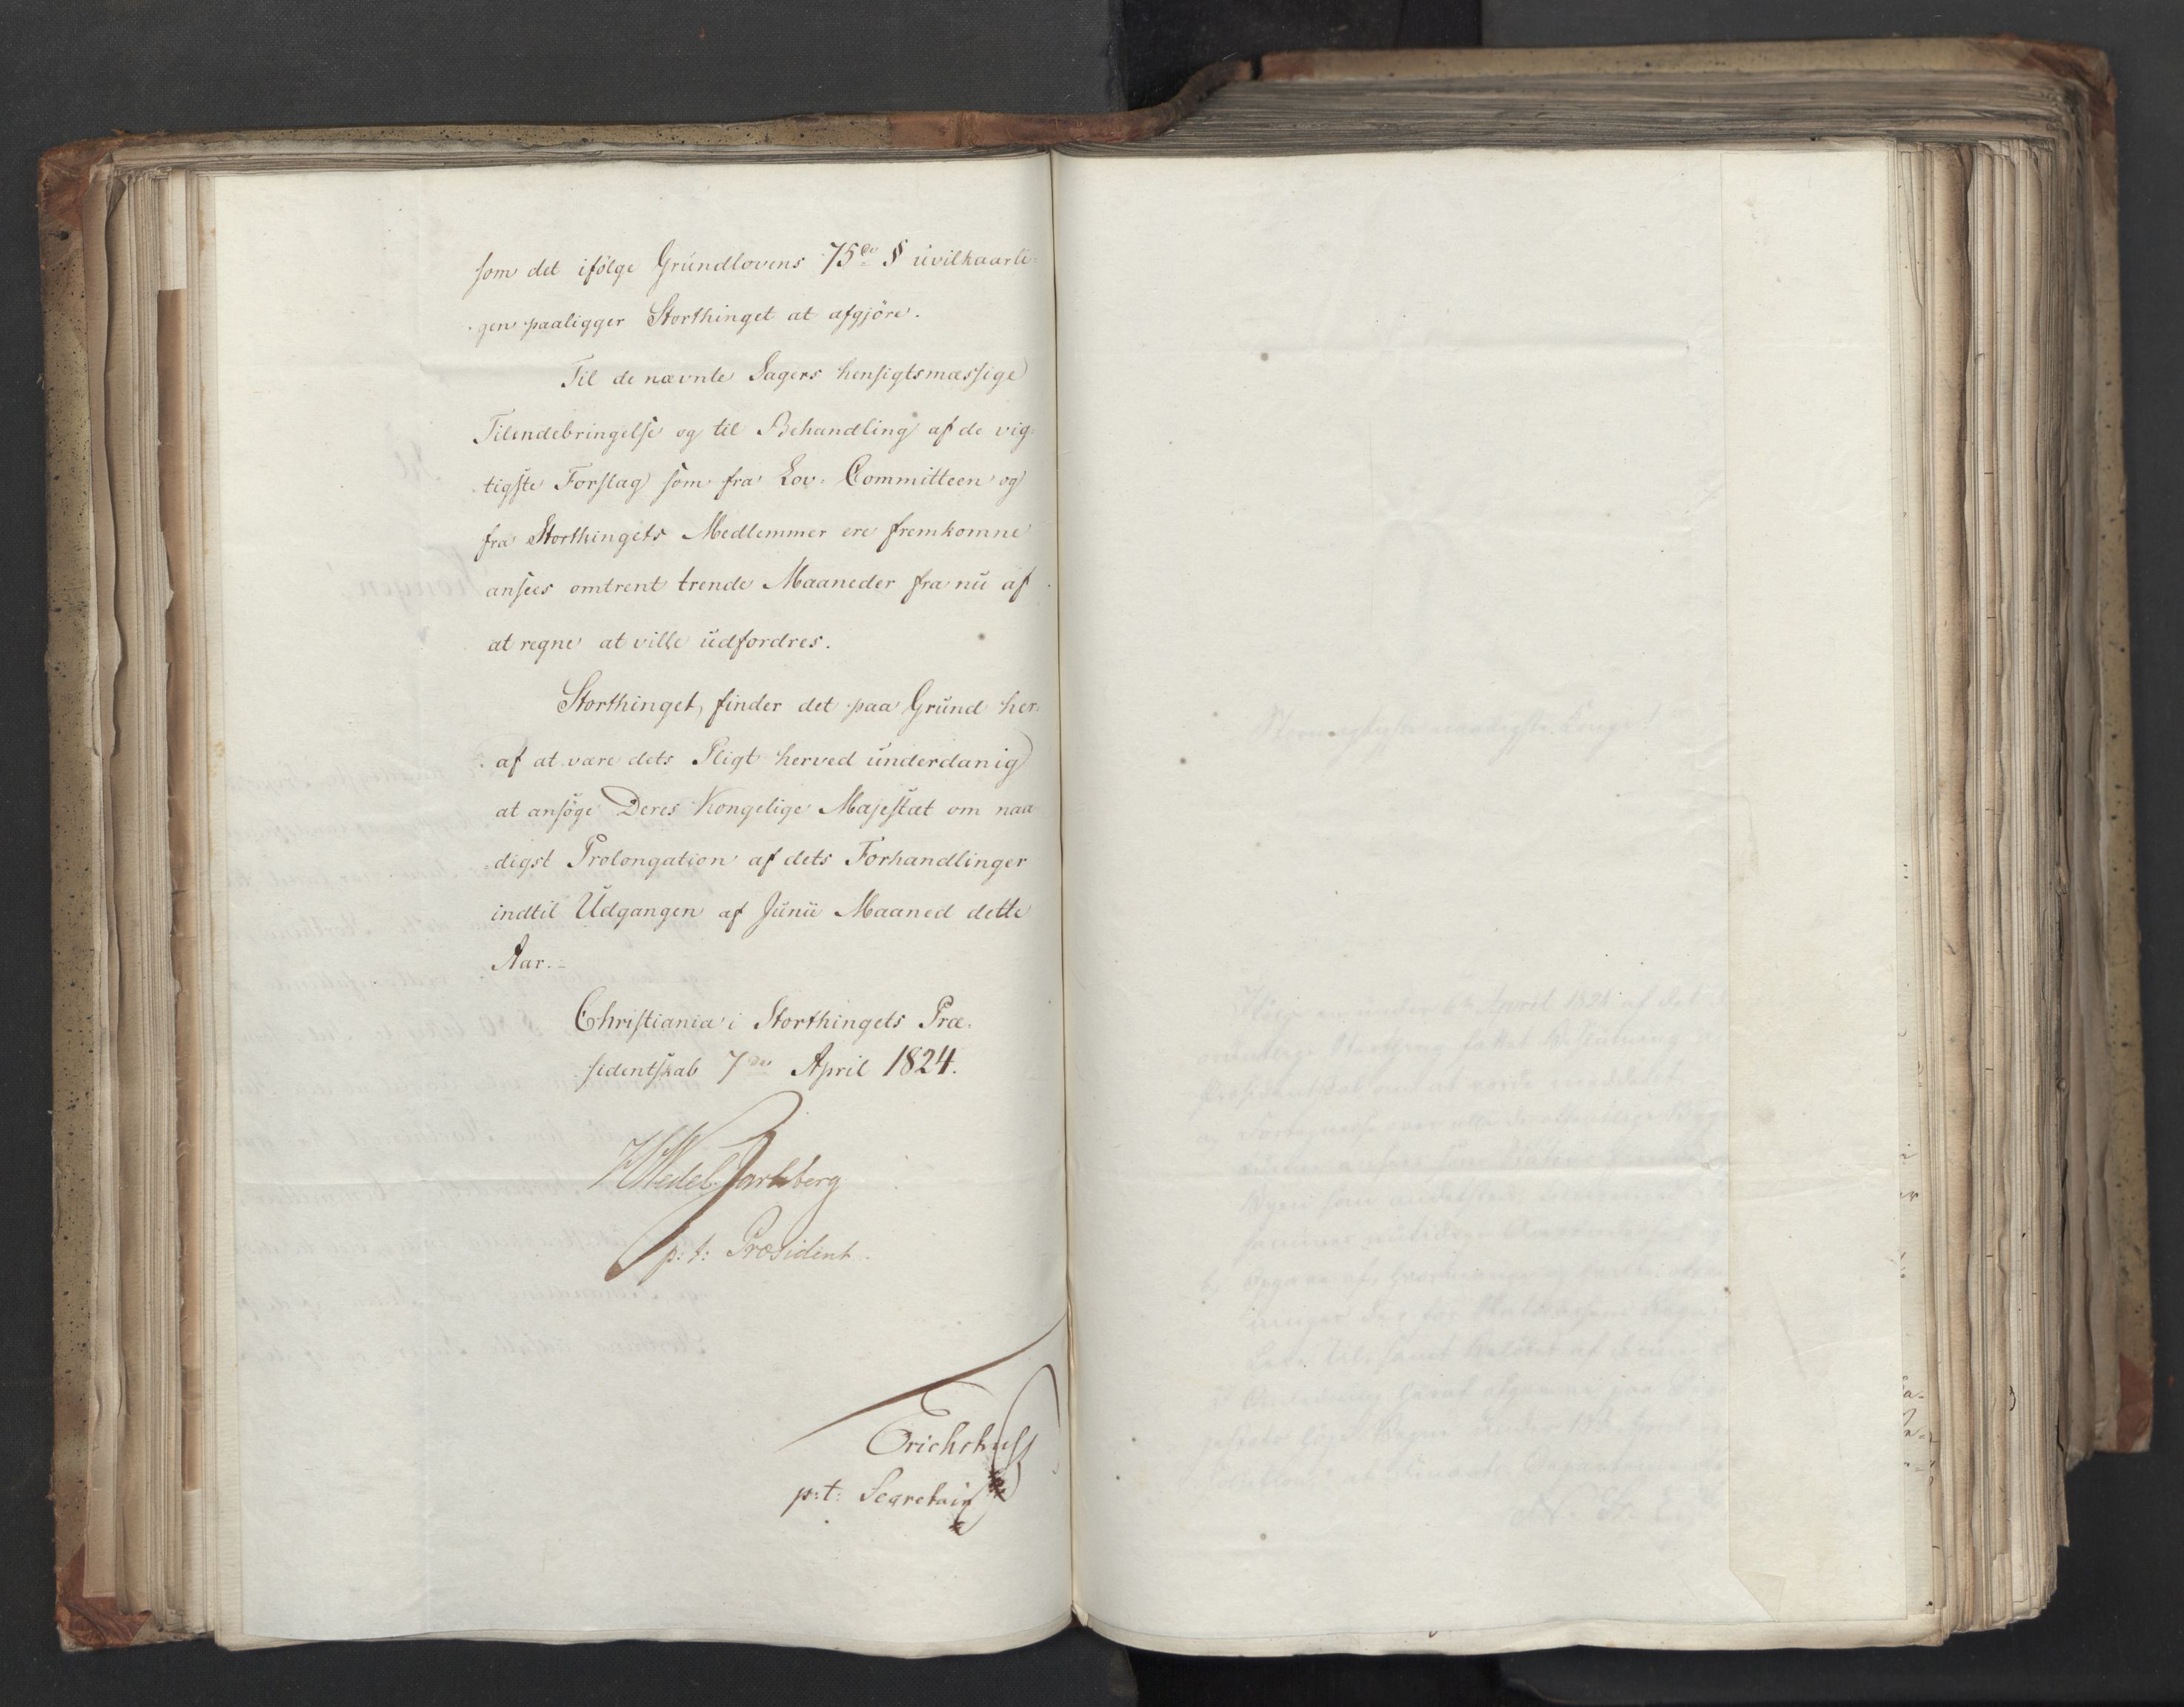 som det ifölge Grundlovens 75de § uvilkaarli-
gen paaligger Storthinget at afgjöre.
Til de nævnte Sagers hensigtsmæssige
Tilendebringelse og til Behandling af de vig-
tigste Forslag som fra Lov-Committeen og
fra Storthingets Medlemmer ere fremkomne
ansees omtrent trende Maaneder fra nu af
at regne at ville udfordres.
Storthinget, finder det paa Grund her-
af at være dets Pligt herved underdanig
at ansöge Deres Kongelige Majestæt om naa-
digst Prolongation af dets Forhandlinger
indtil Udgangen af Junii Maaned dette
Aar.-
Christiania i Storthingets Præ-
sidentskab 7de April 1824.
HWedel Jarlsberg
p: t: Præsident.
p:t: Secretair